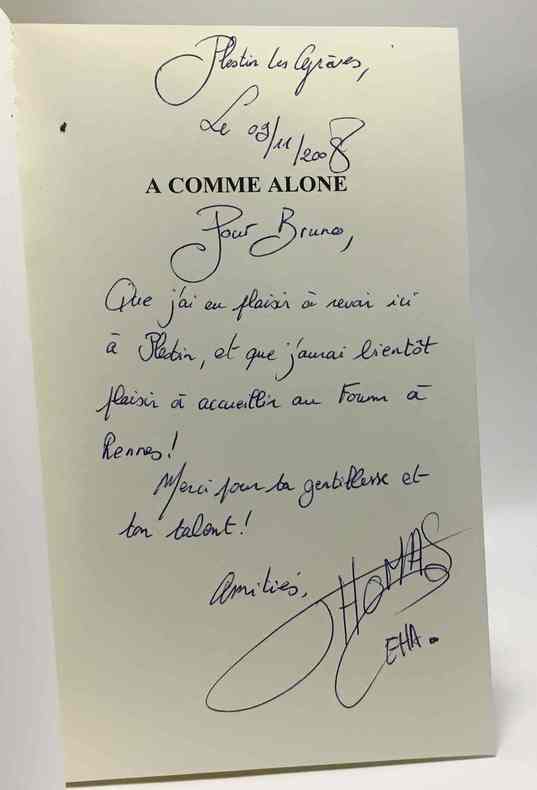 Plestin Les Grèves,
Le 09/11/2008
A COMME ALONE
Pour Bruno,
Que j'ai eu plaisir à revoir ici
à Plestin, et que j'aurai bientôt
plaisir à accueillir au Forum à
Rennes!
Merci pour ta gentillesse et
ton talent!
Amitiés,
THOMAS
EHA.